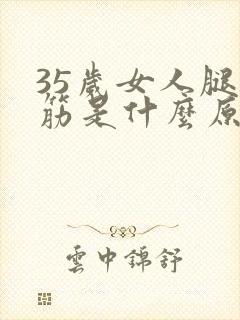 35歲女人腿
筋是什麼原
雲中錦舒